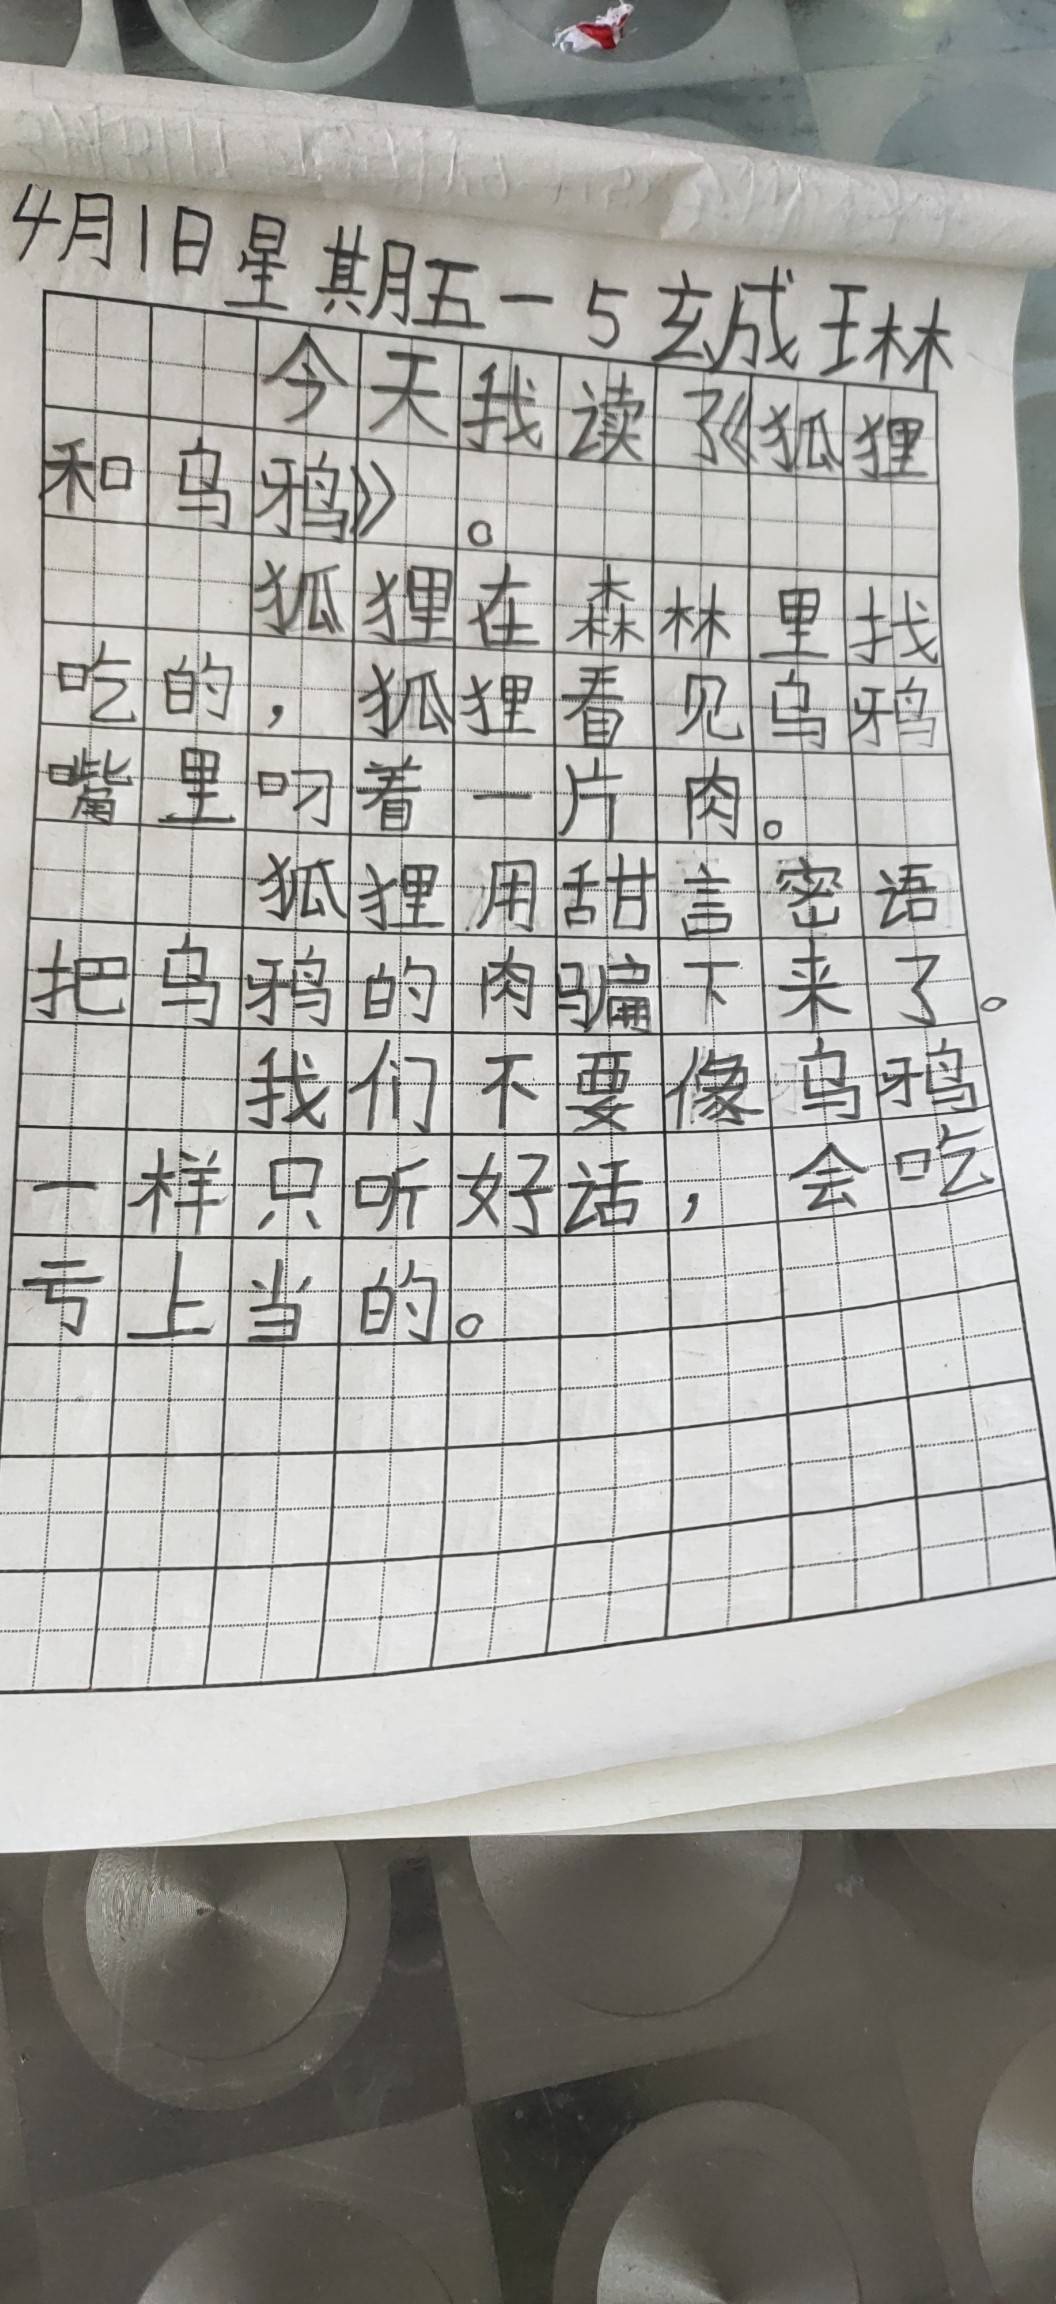 4月1日星期五一5玄成琳
今天我读了《狐狸
和乌鸦》。
狐狸在森林里找
吃的，狐狸看见乌鸦
嘴里叼着一片肉。
狐狸用甜言密语
把乌鸦的肉骗下来了。
我们不要像乌鸦
一样只听好话，会吃
亏上当的。